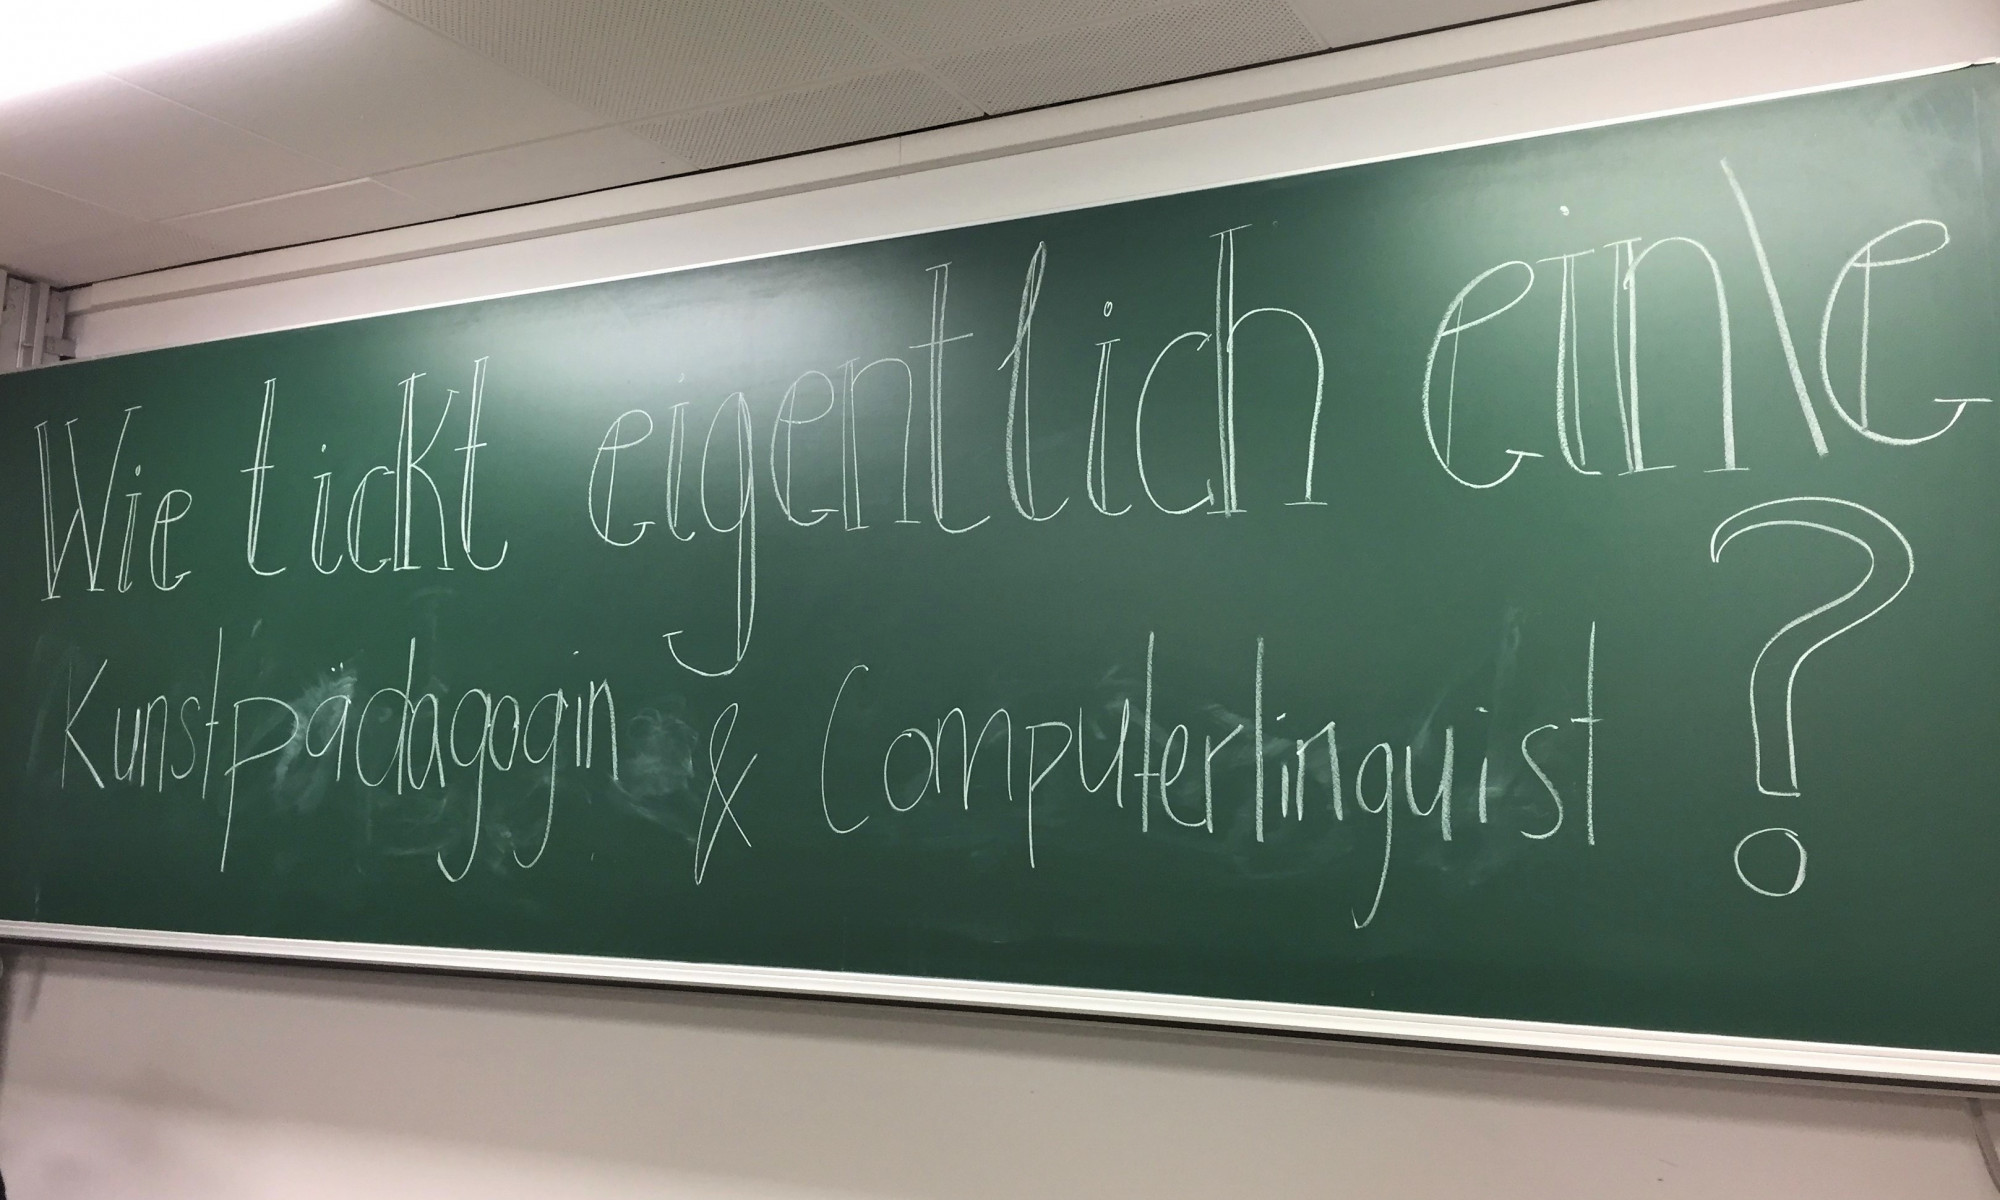 Wie tickt eigentlich ein\e
Kunstpädagogin & Computerlinguist ?